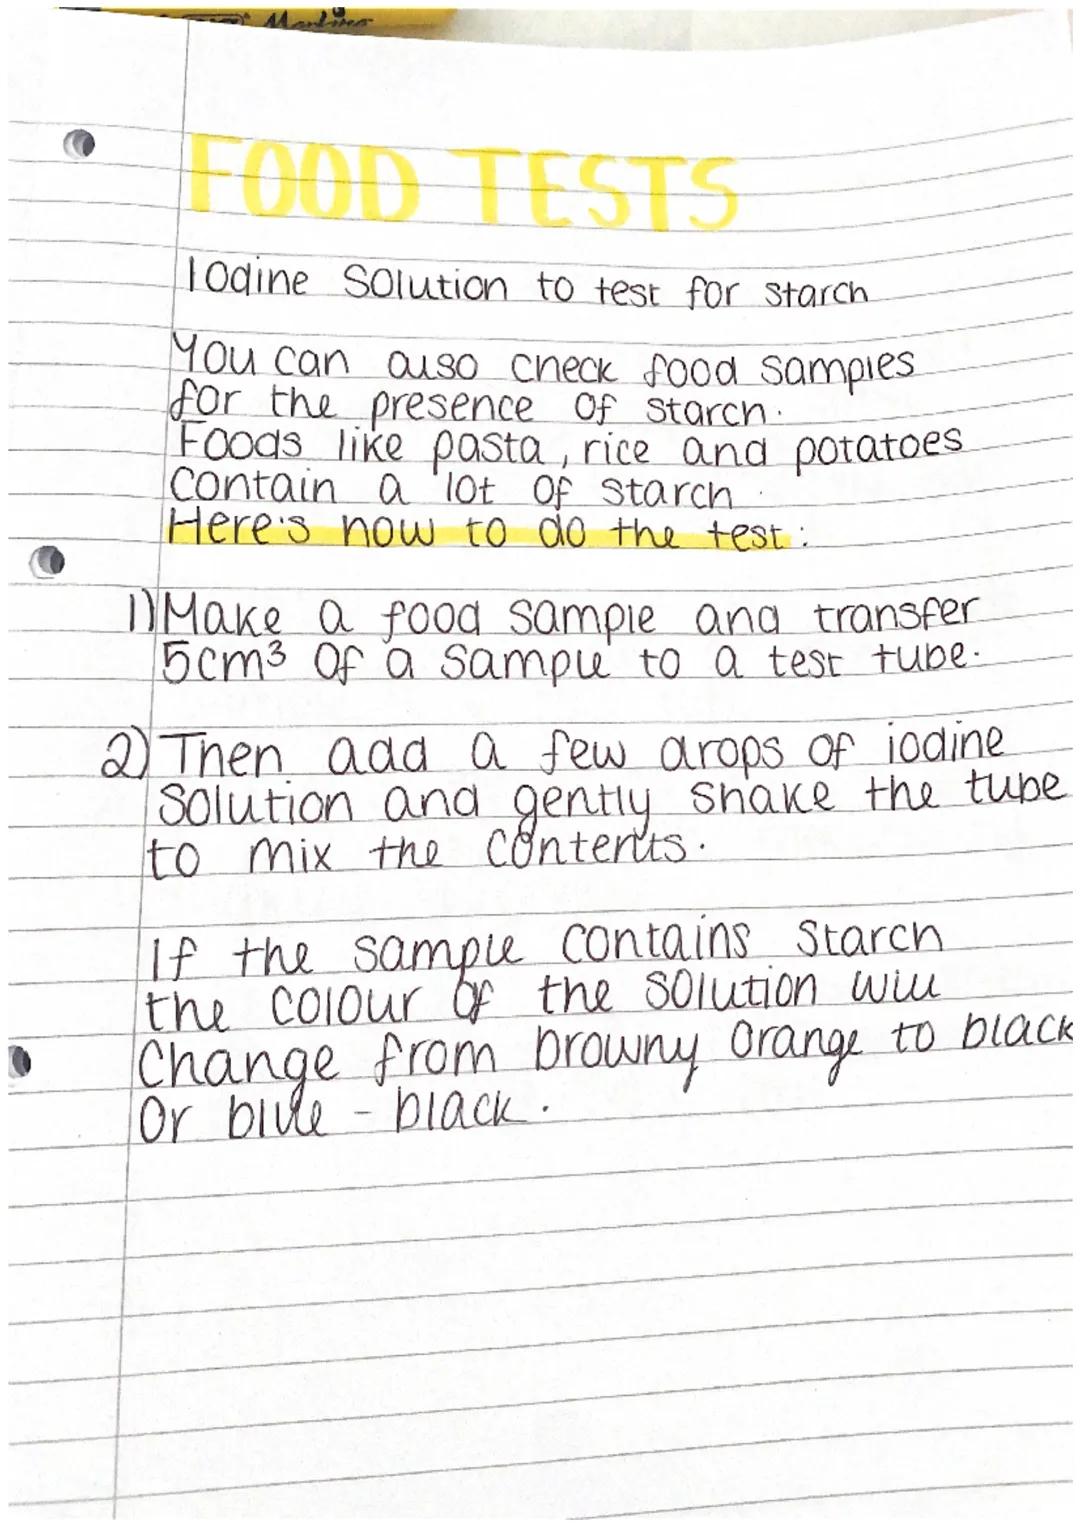 FOOD TESTS
Iodine Solution to test for starch
You can also check food samples
for the presence of starch.
Foods like pasta, rice and potatoes
contain a lot of starch.
Here's how to do the test:
1) Make a food sample and transfer
5cm³ of a sample to a test tube.
2) Then add a few drops of iodine
solution and gently shake the tube
to mix the contents.
If the sample contains starch
the colour of the solution will
change from browny orange to black
or blue-black.